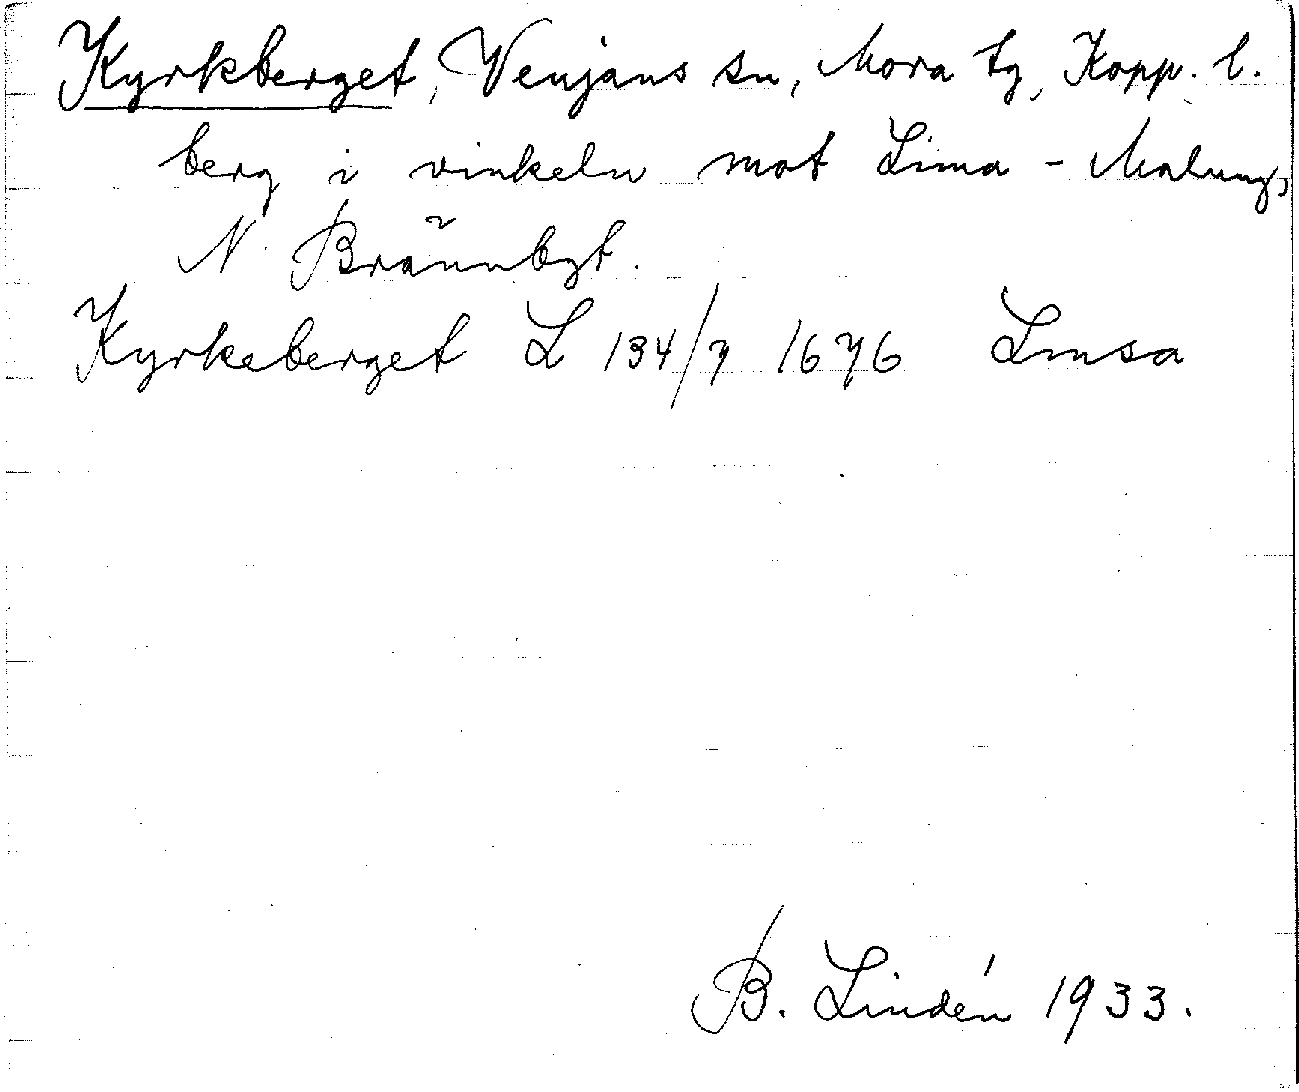 Kyrkberget, Venjans sn, Mora tg, Kopp. l.
berg i vinkeln mot Lima - Malung,
N Brännbgt.
Kyrkeberget L 134/7 1676 Lmsa
B. Lindén 1933.